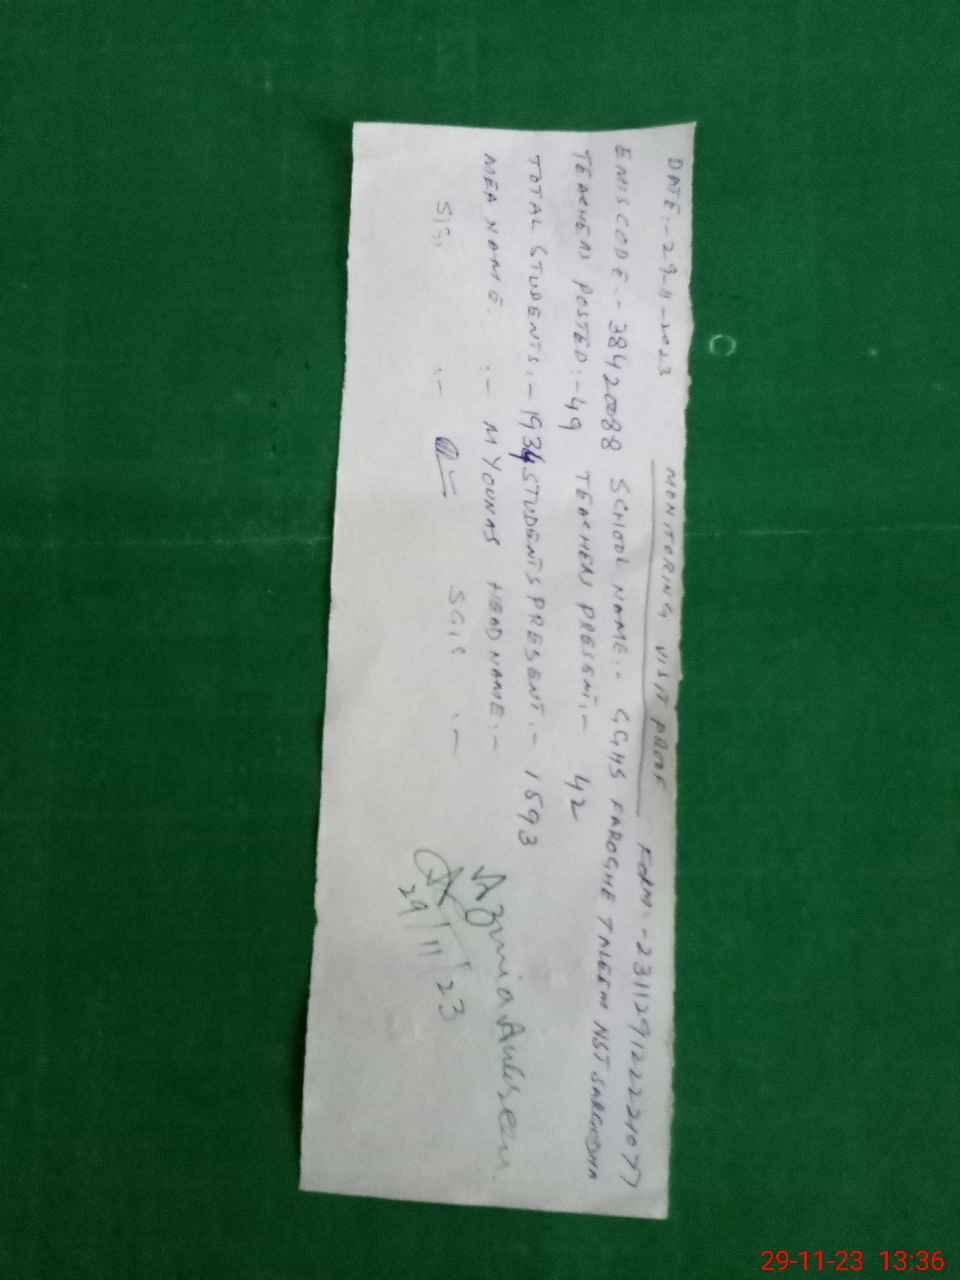 MONITORING VISIT PROOF
DATE:- 29-11-2023 FORM:- 231129122221077
EMISCODE:- 38420088 SCHOOL NAME:- GGHS FAROGHE TALEEM NST SARGODHA
TEACHERS POSTED:- 49 TEACHERS PRESENT:- 42
TOTAL STUDENTS:- 1934 STUDENTS PRESENT:- 1593
MEA NAME :- M YOUNAS HEAD NAME:- Azmia
SIG :- SGIG :-
29/11/23
29-11-23 13:36